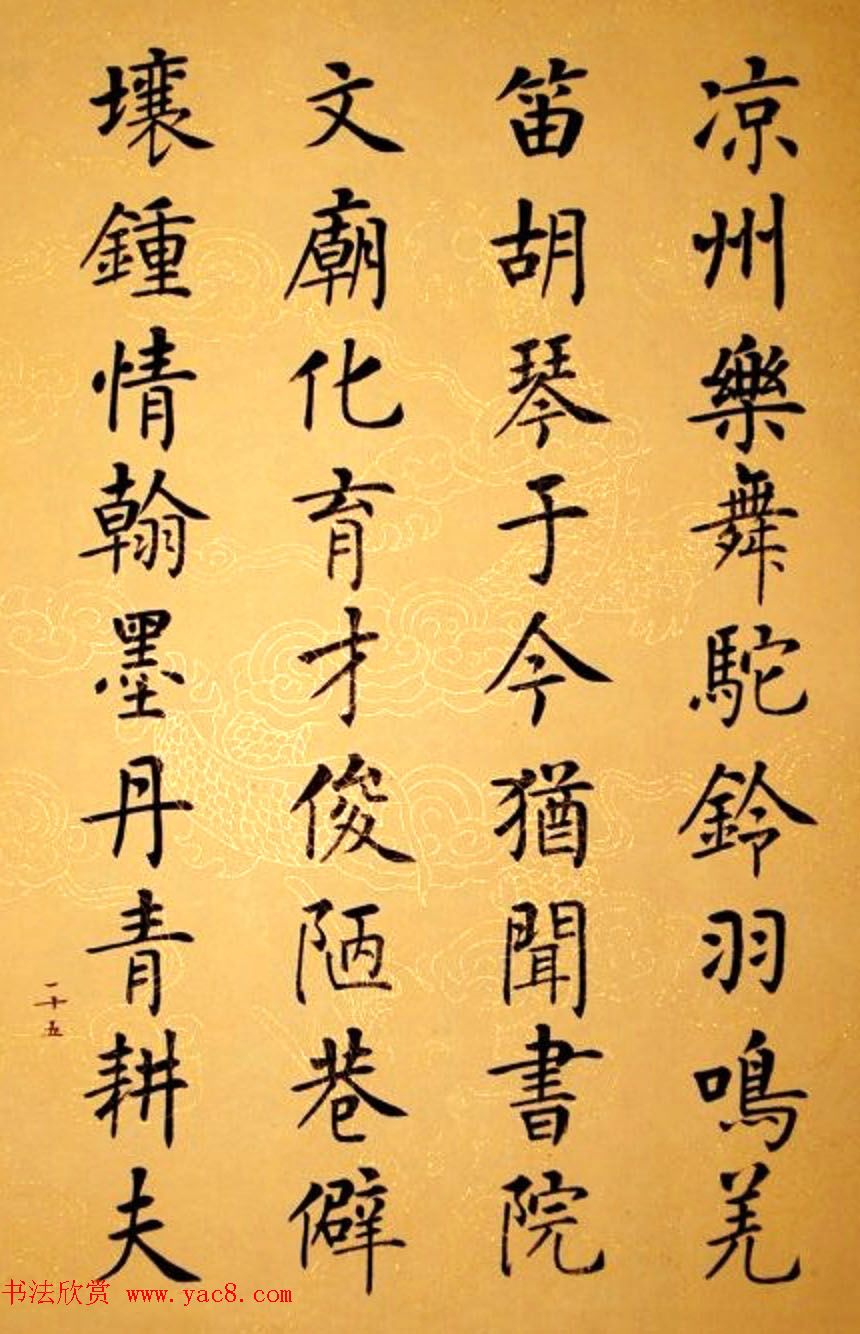 凉州樂舞駝鈴羽鳴羌
笛胡琴于今猶聞書院
文廟化育才俊陋巷僻
壤鍾情翰墨丹青耕夫
二十五
书法欣赏 www.yac8.com